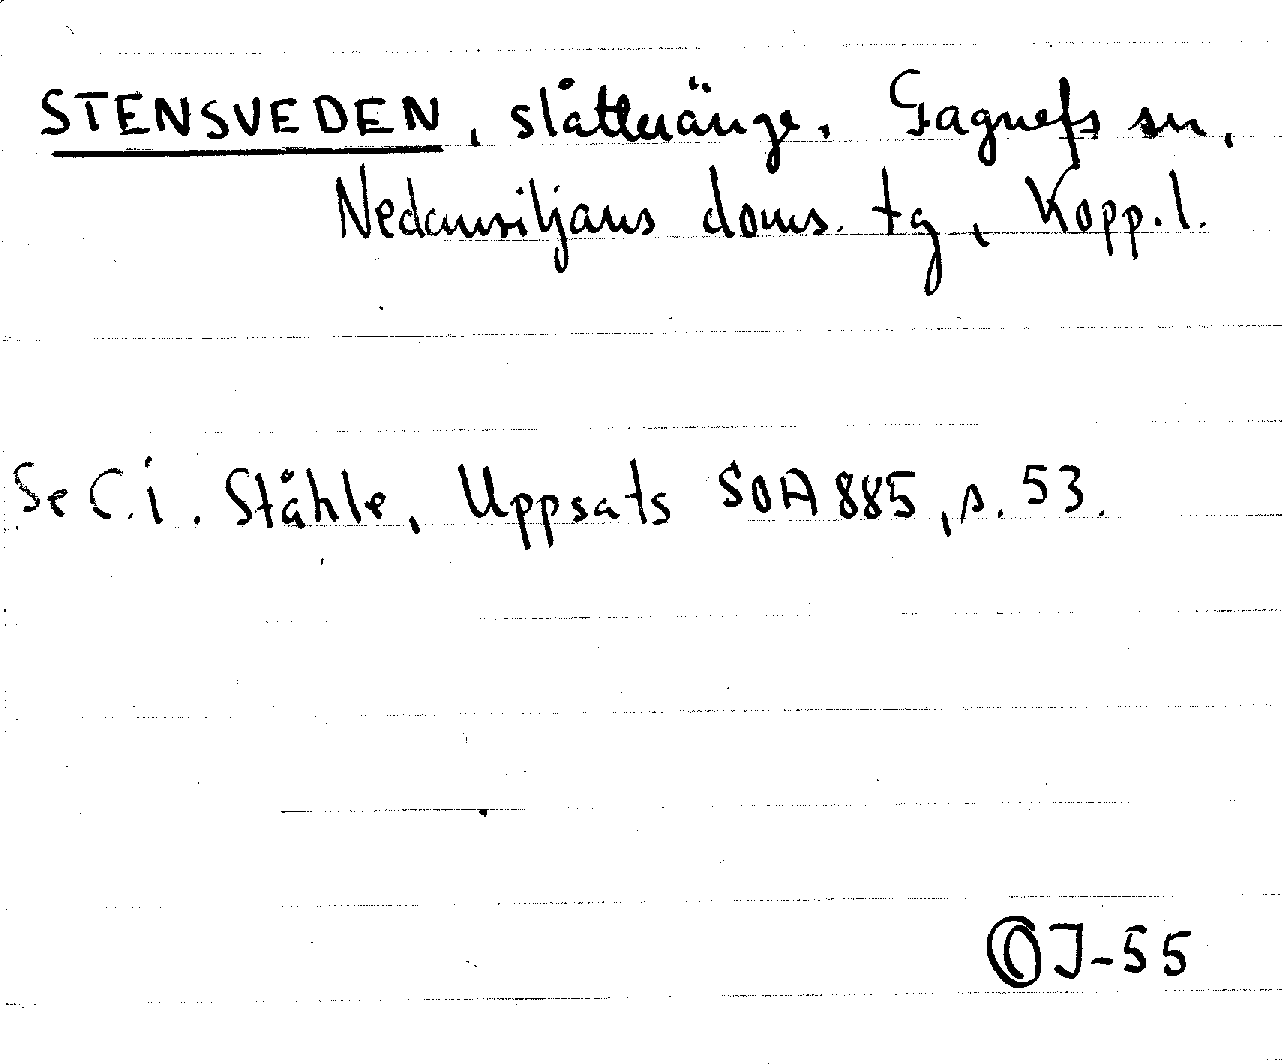 STENSVEDEN, slåtteränge, Gagnefs sn,
Nedansiljans doms. tg, Kopp. l.
Se C.I. Ståhle, Uppsats SOA 885, s. 53.
OJ-55